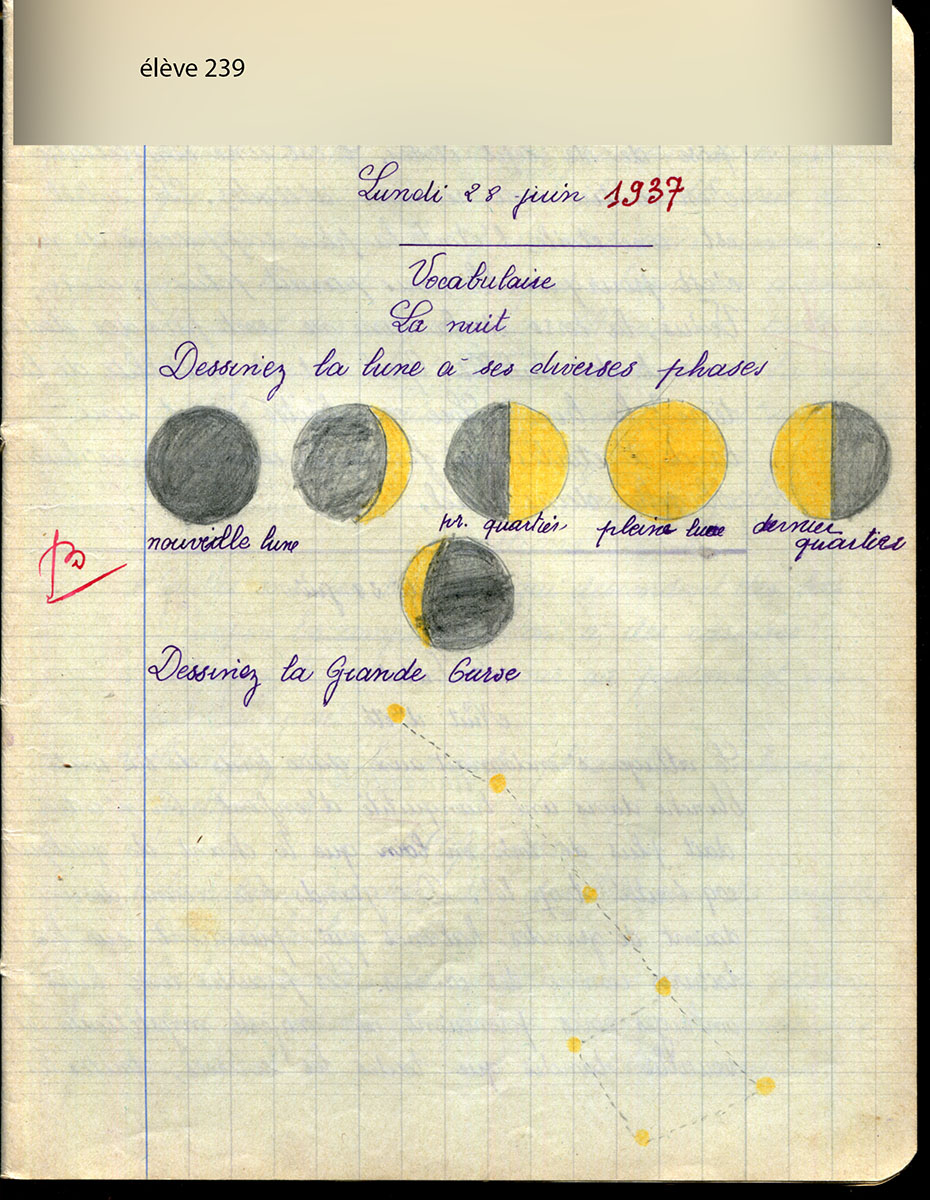 élève 239
Lundi 28 juin 1937
Vocabulaire
La nuit
Dessinez la lune à ses diverses phases
nouvelle lune
pr. quartier
pleine lune
dernier
quartier
B
Dessinez la Grande Ourse